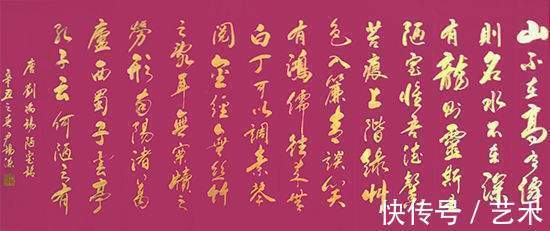 山不在高有僊
則名水不在深
有龍則靈斯是
陋室惟吾德馨
苔痕上階緑艸
色入簾青談笑
有鴻儒往来無
白丁可以調素琴
閲金經無絲竹
之亂耳無案牘之
勞形南陽諸葛
廬西蜀子雲亭
孔子云何陋之有
唐劉禹錫陋室銘
辛丑之
快传号/艺术